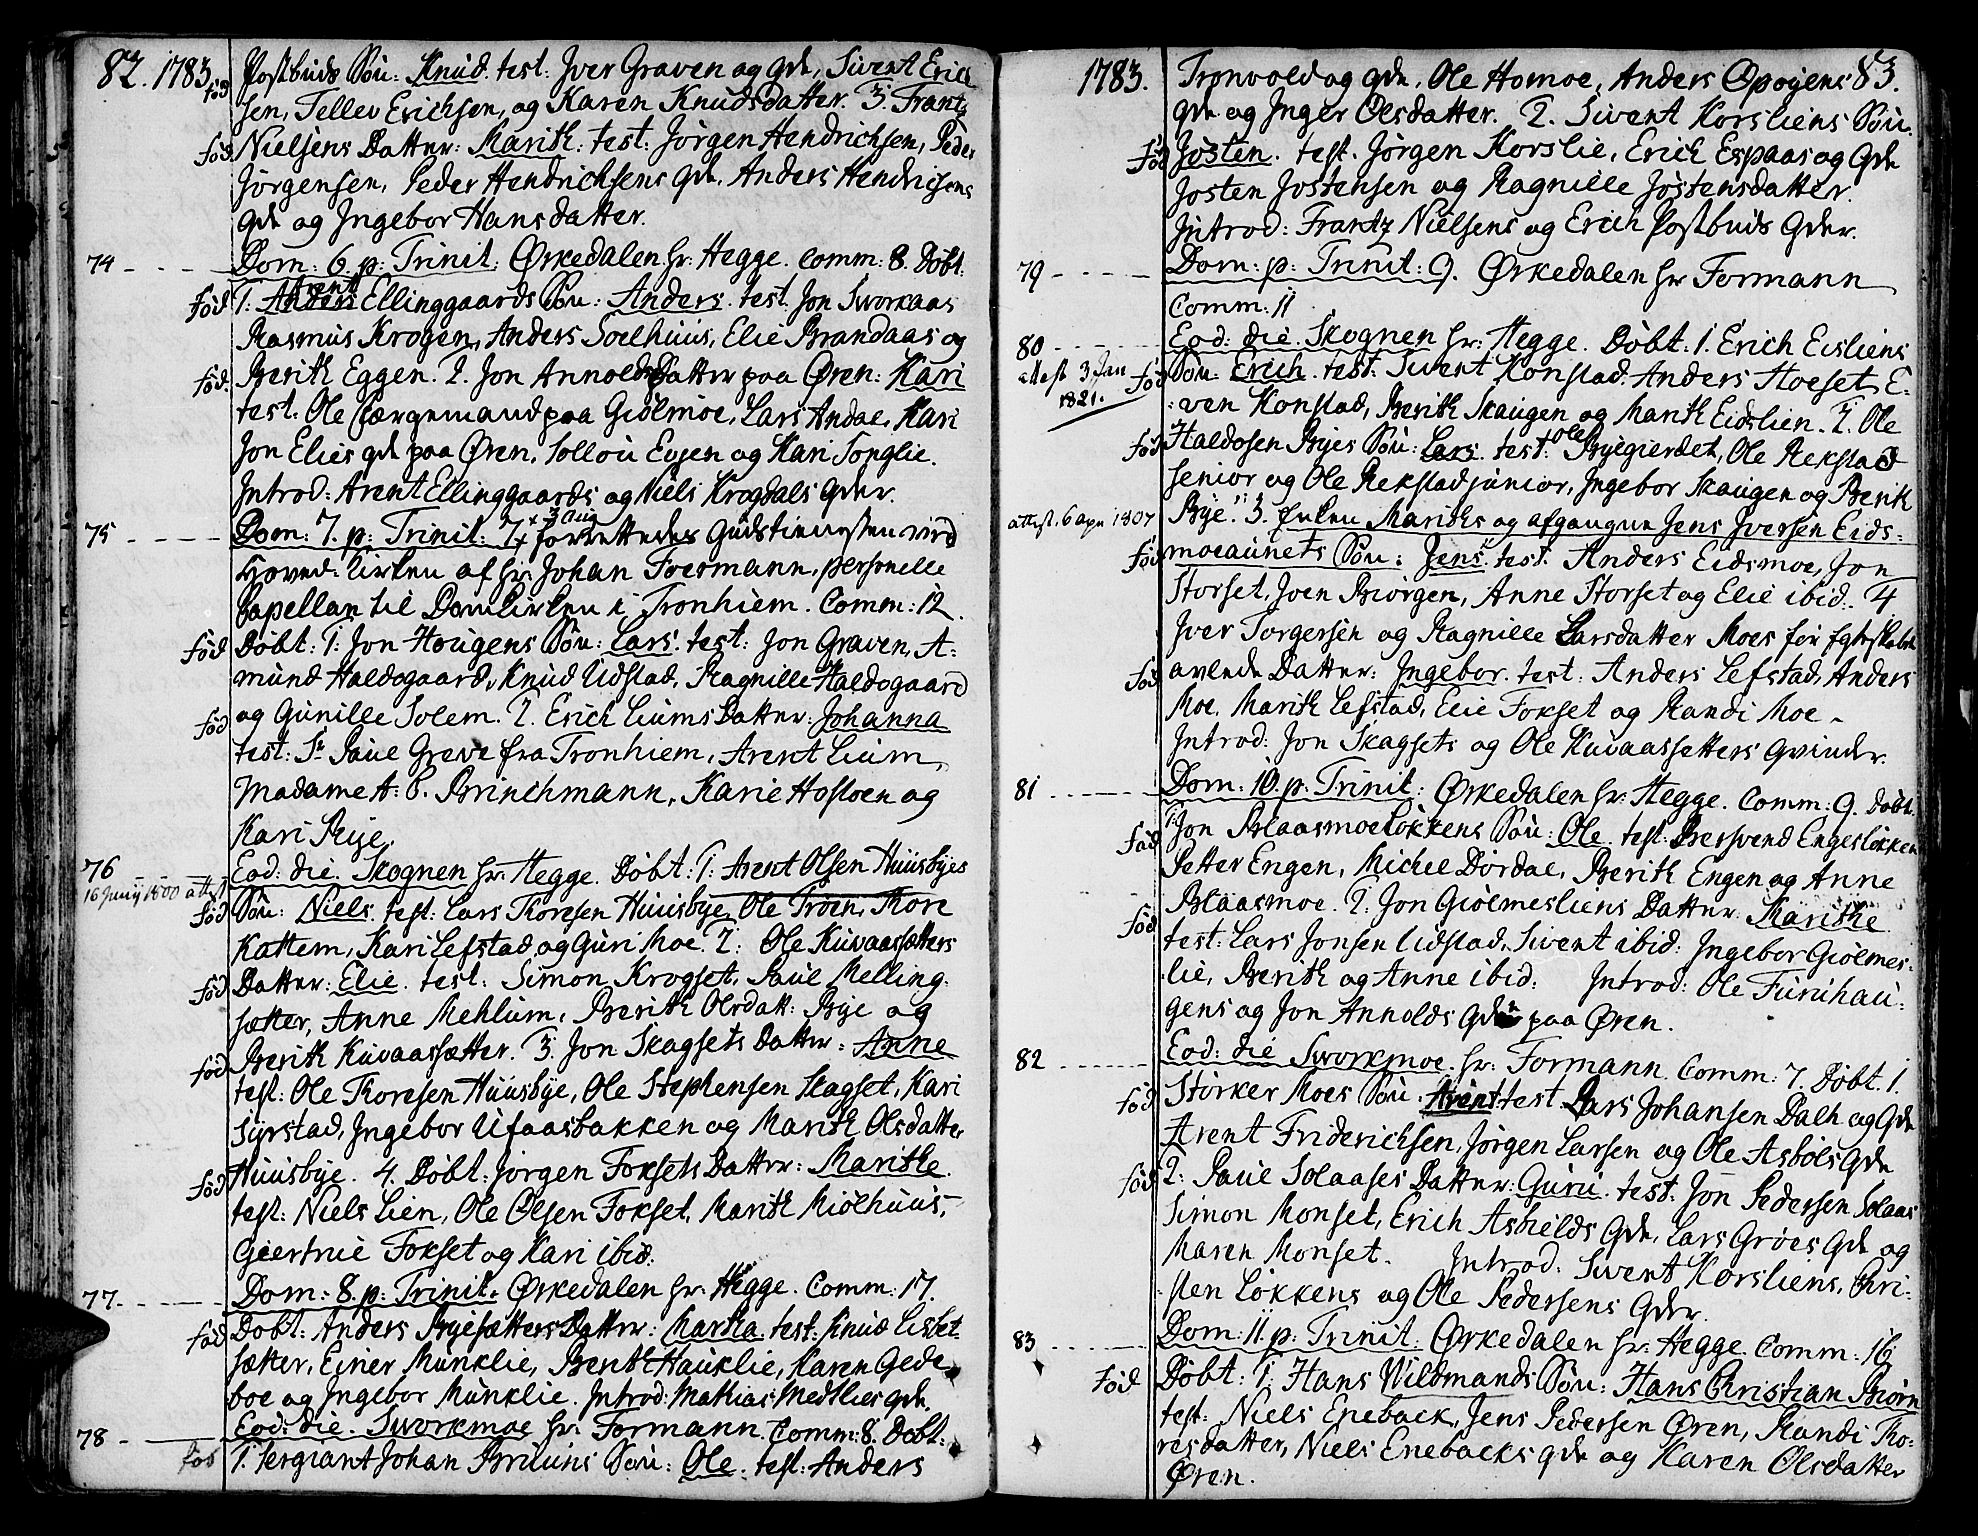 82. 1783.
Postbuds Søn: Knud. test: Iver Graven og gde, Sivert Erich
sen, Tellev Erichsen, og Karen Knudsdatter. 3. Frantz
fød
Nielsens Datter: Marith: test: Jørgen Hendrichsen, Peder
fød
Jørgensen, Peder Hendrichsens gde, Anders Hendrichsens
gde og Ingebor Hansdatter.
74 Dom: 6. p: Trinit: Ørkedalen hr: Hegge. comm: 8. Døbt.
fød 1. Arent Ellinggaards Søn: Anders. test. Jon Sworkaas
Rasmus Krogen, Anders Solhuus, Elie Brandaas og
fød. Berith Eggen. 2. Jon Annolds Datter paa Øren: Kari
test: Ole færgemand paa Giølmoe, Lars Andal, Kari
Jon Elies gde paa Øren, Sollou Evjen og Kari Songlie.
Introd: Arent Ellinggaards og Niels Krogdals gder.
75 Dom: 7. p: Trinit: 7 + 3 Aug forrettedes Gudstienesten ved
Hoved-Kirken af hr: Johan Foermann, personelle
Capellan til Domkirken i Tronhiem. Comm: 12.
fød Døbt: 1. Jon Hougens Søn: Lars. test: Jon Graven, A-
mund Haldogaard, Knud Udstad, Ragnille Haldogaard
fød og Gunille Solem. 2. Erich Liums Datter: Johanna
test: Sr Paul Greve fra Tronhiem, Arent Lium,
Madame A: C. Brinchmann, Karie Hosloen og
Kari Rije.
76 Eod: die. Skognen hr: Hegge. Døbt: 1. Arent Olsen Huusbyes
16 Junij 1800 attest
fød Søn: Niels. test: Lars Thoresen Huusbye, Ole Troen, Thore
Kattem, Kari Lefstad og Guri Moe. 2. Ole Kuvaassætters
fød Datter: Elie. test: Simon Krogset, Paul Melling-
sætter, Anne Mehlum, Berith Olsdatt: Bye og
fød Berith Kuvaassætter. 3. Jon Skagsets Datter: Anne
test: Ole Thoresen Huusbye, Ole Stephensen Skagset, Kari
Syrstad, Ingebor Ufaasbakken og Marith Olsdatter
fød Huusbye. 4. Døbt: Jørgen Foksets Datter: Marithe.
test: Niels Lien, Ole Olsen Fokset, Marith Miølhuus,
Giertrue Fokset og Kari ibid:
77 Dom: 8. p: Trinit. Ørkedalen hr: Hegge. Comm: 17.
fød Døbt: Anders Ryesætters Datter: Martha. test: Knud Lisbet
sætter, Einer Munklie, Berith Hauklie, Karen Gede-
boe og Ingebor Munklie. Introd: Mathias Medtlies gde.
78 Eod: die. Sworkmoe hr: Formann. Comm: 8. Døbt:
fød 1. Sergiant Johan Bruuns Søn: Ole. test: Anders
1783. 83.
Tronvold og gde, Ole Homoe, Anders Opøyens
gde og Inger Olsdatter. 2. Sivert Korsliens Søn.
fød Josten. test. Jørgen Korslie, Erich Espaas og Gde
Josten Jostensen og Ragnille Jostensdatter.
Introd: Frantz Nielsens og Erich Postbuds Gder.
79 Dom: p: Trinit: 9. Ørkedalen hr Formann
Comm: 11
80 Eod: die. Skognen hr: Hegge. Døbt: 1. Erich Eisliens
attest 3 Jan 1821.
fød Søn: Erich. test: Sivert Konstad, Anders Hoeset, E-
ven Konstad, Berith Skaugen og Marith Eidslien. 2. Ole
fød Haldosen Byes Søn: Lars. test: Ole Byegierdet, Ole Rekstad
senior og Ole Rekstad junior, Ingebor Skaugen og Berith
attest. 6 apr 1807
Bye. 3. Enken Mariths og afgangne Jens Iversen Eids-
fød moeaunets Søn: Jens. test. Anders Eidsmoe, Jon
Storset, Joen Biørgen, Anne Storset og Elie ibid. 4
Iver Torgersen og Ragnille Larsdatter Moes for
fød avlede Datter: Ingebor. test: Anders Lefstad, Anders
Moe, Marith Lefstad, Elie Fokset og Randi Moe.
Introd: Jon Skagsets og Ole Kuvaassetters Qvinder.
81 Dom: 10. p: Trinit: Ørkedalen hr: Hegge. Comm: 9. Døbt.
fød 1. Jon Blaasmoeløkkens Søn: Ole. test: Bersvend Engesløkken
Petter Engen, Michel Dørdal, Berith Engen og Anne
fød Blaasmoe. 2. Jon Giølmesliens Datter: Marithe
test: Lars Jonsen Udstad, Sivert ibid: Ingebor Giølmes-
lie, Berith og Anne ibid: Introd: Ole Furuhau-
gens og Jon Annolds Gder paa Øren.
82 Eod: die Sworkmoe. hr: Formann. Comm: 7. Døbt. 1.
fød Størker Moes Søn: Arent test Lars Johansen Dalh og Gde
Arent Friderichsen, Jørgen Larsen og Ole Asbøls Gde
fød 2. Paul Solaases Datter: Guru. test: Jon Pedersen Solaas
Simon Monset, Erich Asbiølds Gde, Lars Grøes Gde og
Maren Monset. Introd: Sivert Korsliens, Chri-
sten Løkkens og Ole Pedersens Gder.
83 Dom: 11. p: Trinit: Ørkedalen hr: Hegge. Comm: 16
fød Døbt: 1. Hans Wildmands Søn: Hans Christian Biørn
test: Niels Eneback, Jens Pedersen Øren, Randi Tho-
resdatter, Niels Enebacks gde og Karen Olsdatter
Øren.